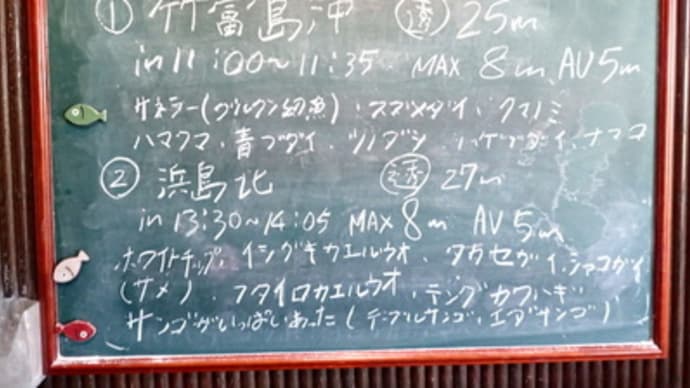 ① 竹富島沖 透 25m
in 11:00〜11:35. MAX 8m AV 5m
サネラー(グルクン幼魚)・スズメダイ、クマノミ
ハマクマ、青ブダイ、ツノダシ、ハゲブダイ、ナマコ
② 浜島北 透 27m
in 13:30〜14:05 MAX 8m AV 5m
ホワイトチップ、イシガキカエルウオ、タカセガイ、シャコガイ
(サメ)、フタイロカエルウオ、テングカワハギ
サンゴがいっぱいあった(テーブルサンゴ、エダサンゴ)